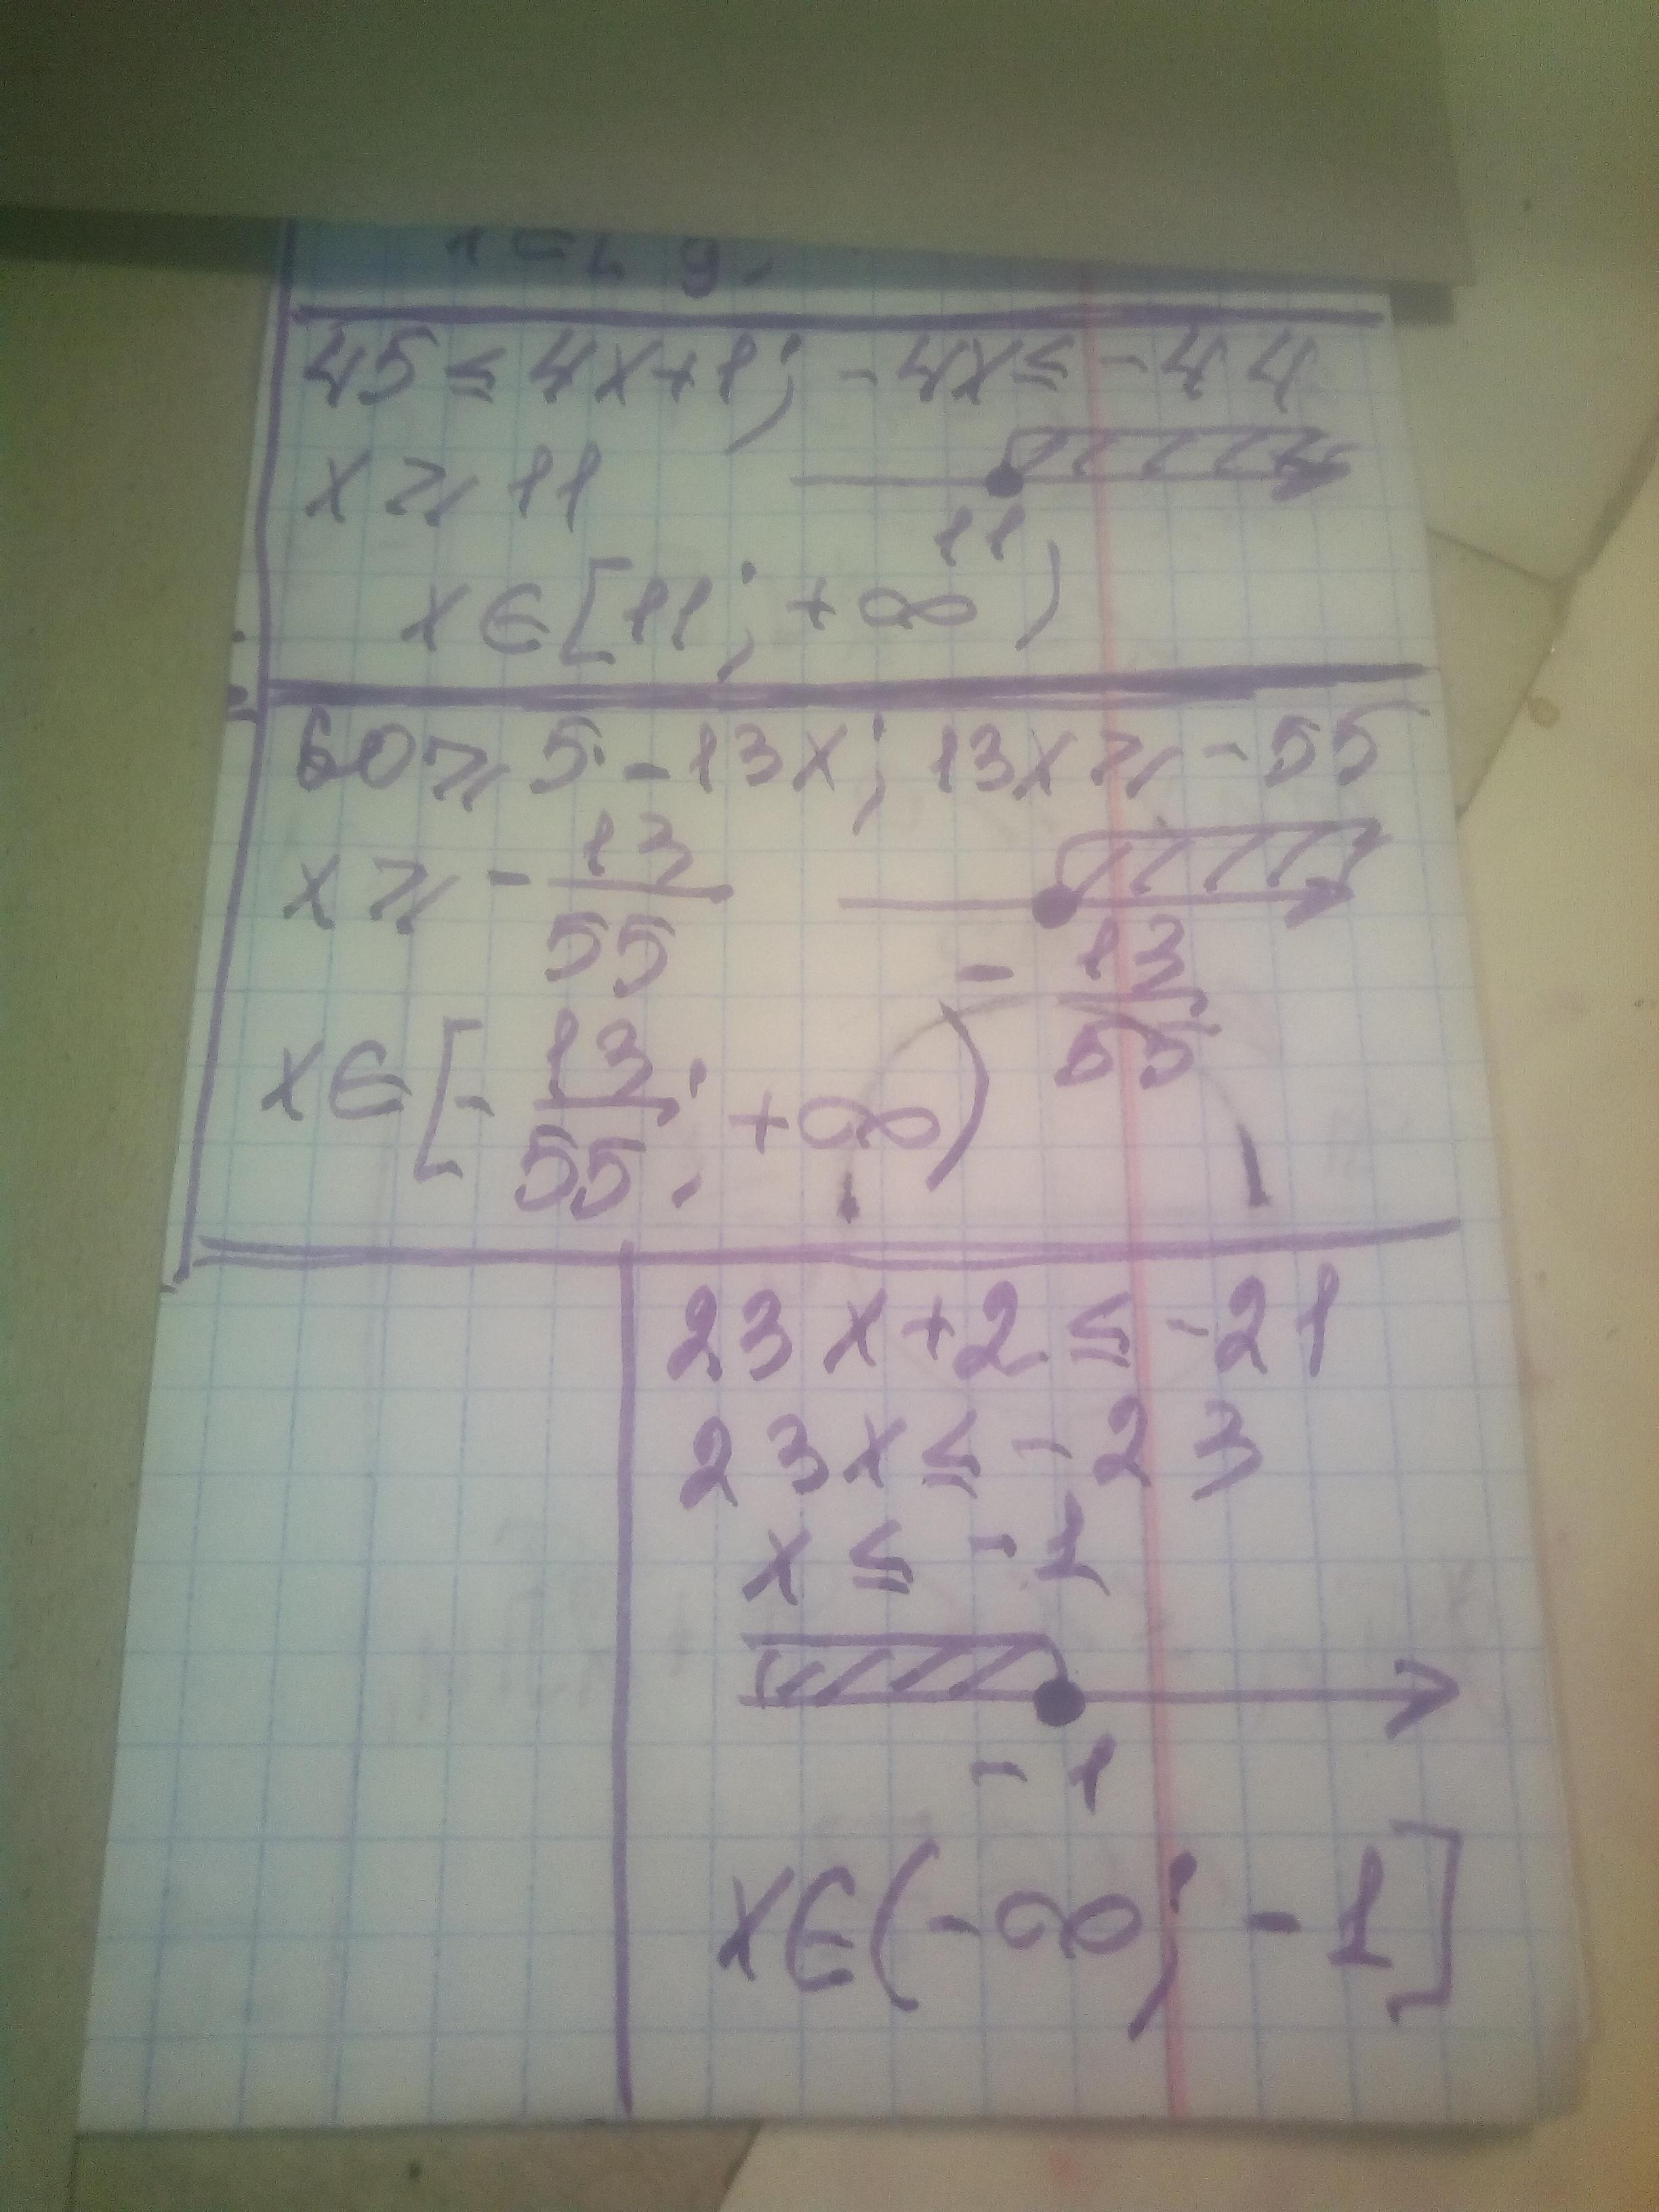 45 ≤ 4x+1; -4x ≤ -44
x ≥ 11
11
x ∈ [11; +∞)
60 ≥ 5 - 13x; 13x ≥ -55
x ≥ - 13/55
- 13/55
x ∈ [- 13/55; +∞)
23x+2 ≤ -21
23x ≤ -23
x ≤ -1
-1
x ∈ (-∞; -1]